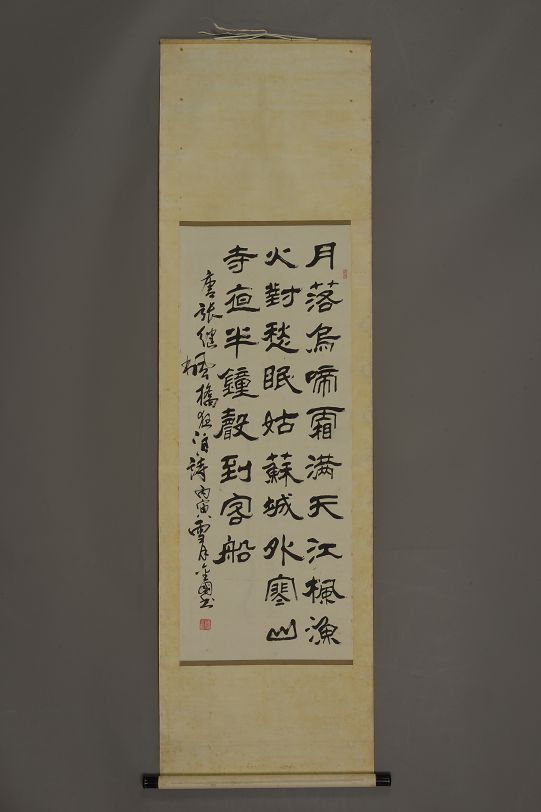 月落烏啼霜滿天江楓漁
火對愁眠姑蘇城外寒山
寺夜半鐘聲到客船
唐張繼楓橋夜泊詩丙寅雪月金國書